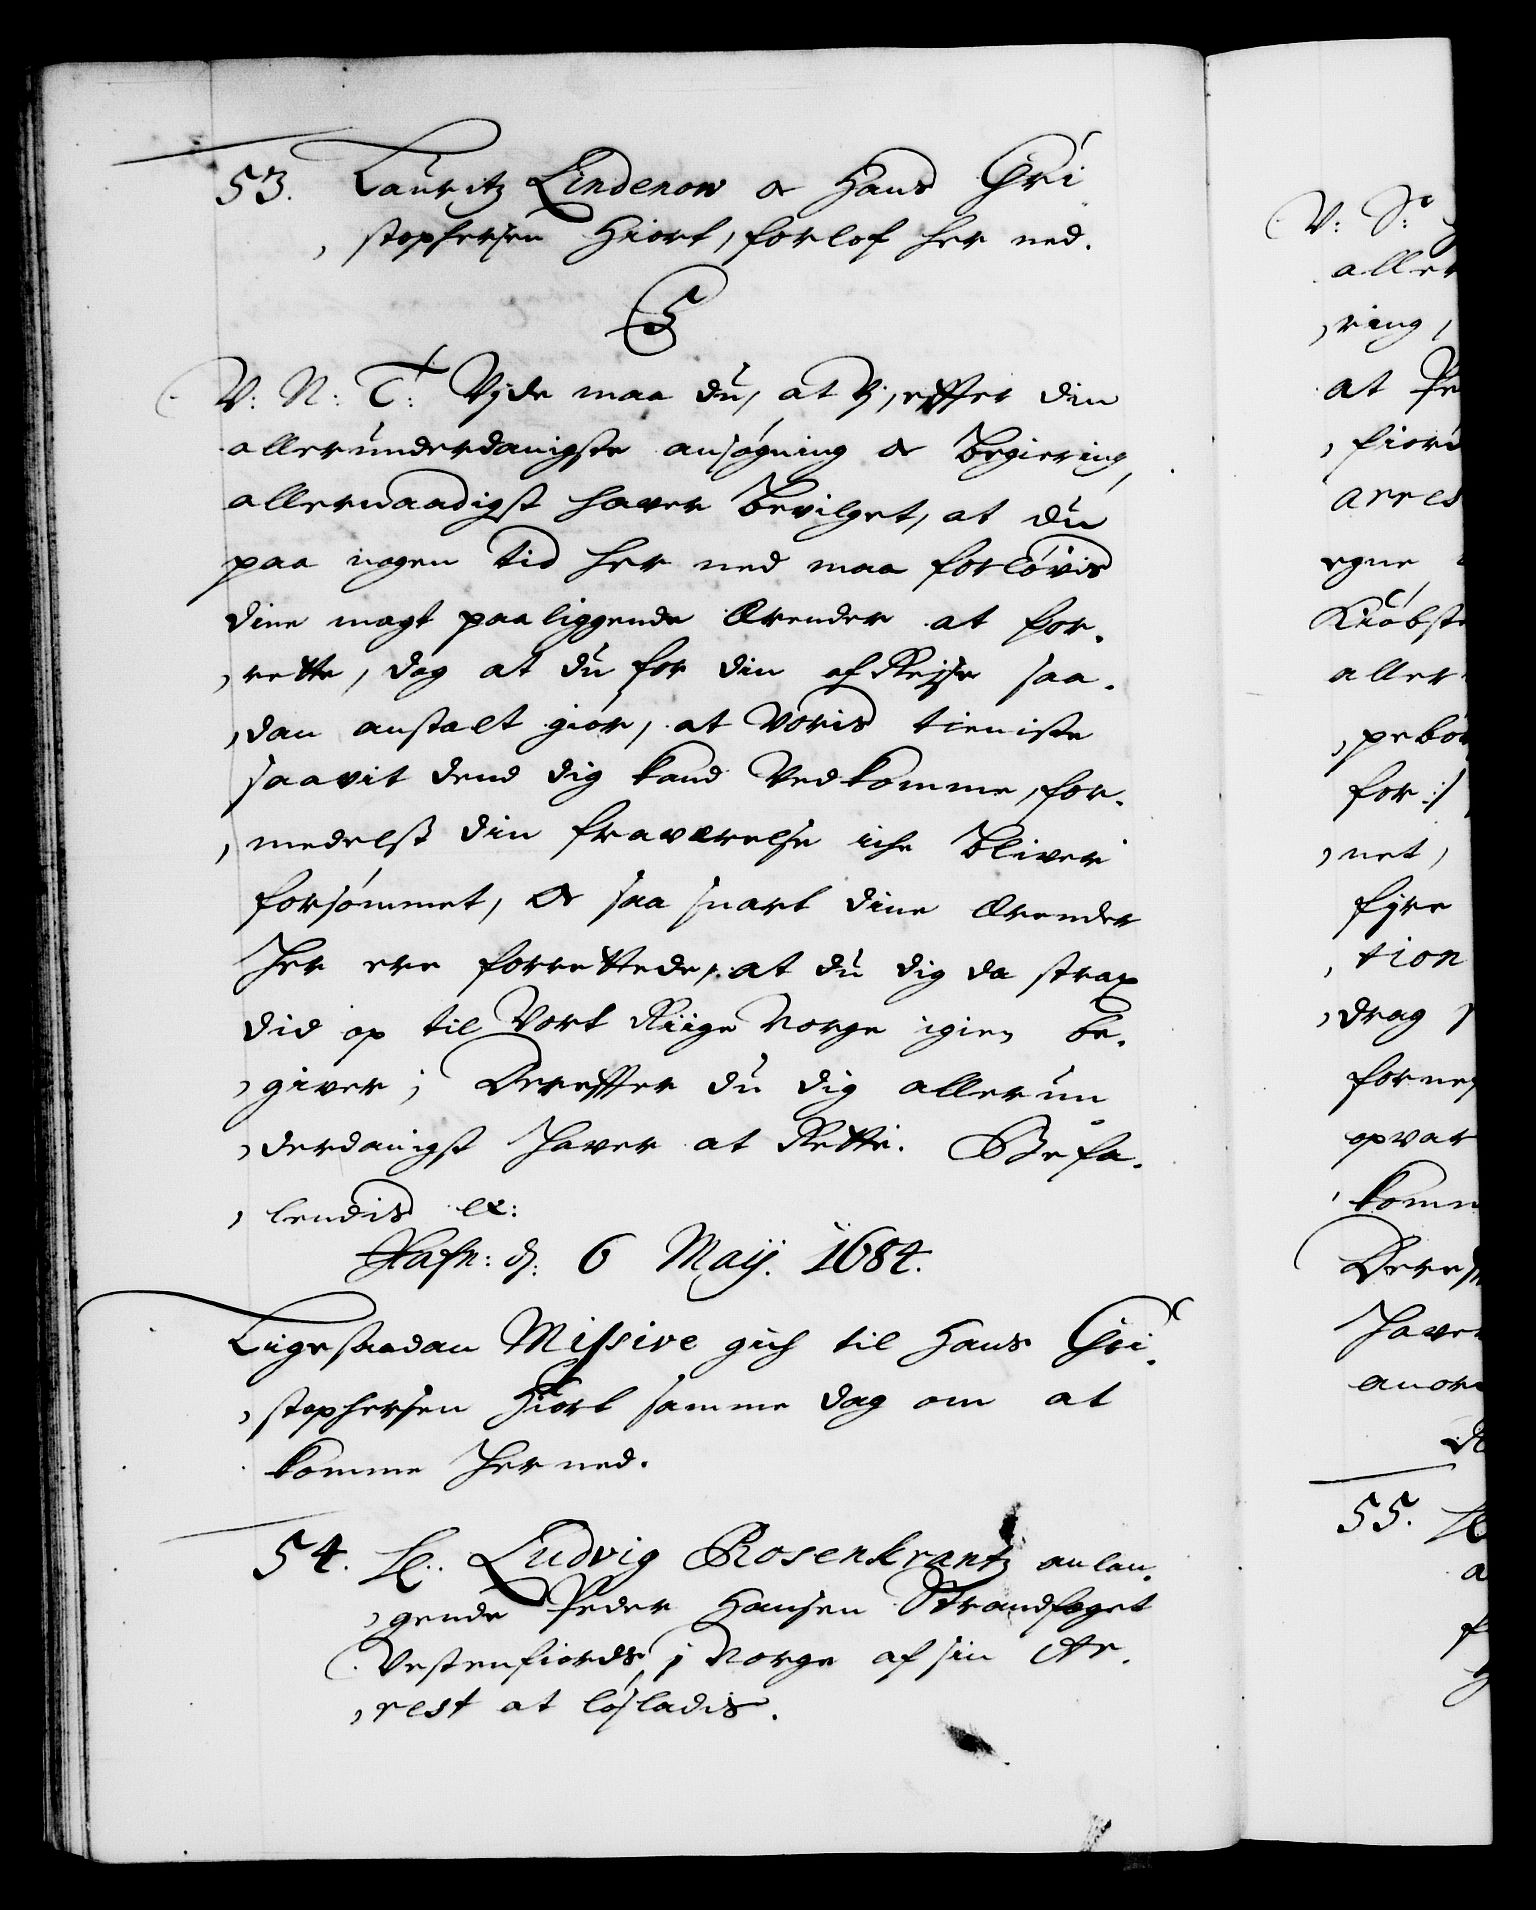 53. Lauritz Lindenow oc Hans Chri
, stophersen Hiort, forlof her ned.
C 5
V: N: T: Vide maa du, at Vj, effter din
allerunderdanigste ansøgning oc begiering,
allernaadigst hafver bevilget, at du
paa nogen tid her ned maa forløvis
dine magt paaliggende ærender at for-
, rette, dog at du før din af Reijse saa-
, dan anstalt giør, at Voris tieniste
saavit dend dig kand vedkomme, for-
, medelst din fraværelse iche bliver
forsømmet, oc saa snart dine ærender
her ere forrettede, at du dig da strax
did op til Vort Riige Norge igien be-
, giver; Dereffter du dig allerun
, derdanigst haver at Rette. Befa-
, lendis etc:
Hafn: d: 6 Maij. 1684.
Lige saadan Missive gich til Hans Chri-
, stophersen Hiort samme dag om at
komme her ned.
54. Hr: Ludvig Rosenkrantz anlan-
, gende Peder Hansen Strandfoget
Vestenfiords i Norge af sin Ar-
, rest at løsladis.
V: S:
aller
, ring,
at Pe
, fiord
arres
egne
Kiøbste
aller
, pebør
for :/
, net,
fyre
, tion
, drag
forne
opvar
, komm
Dere
haver
anor
55.